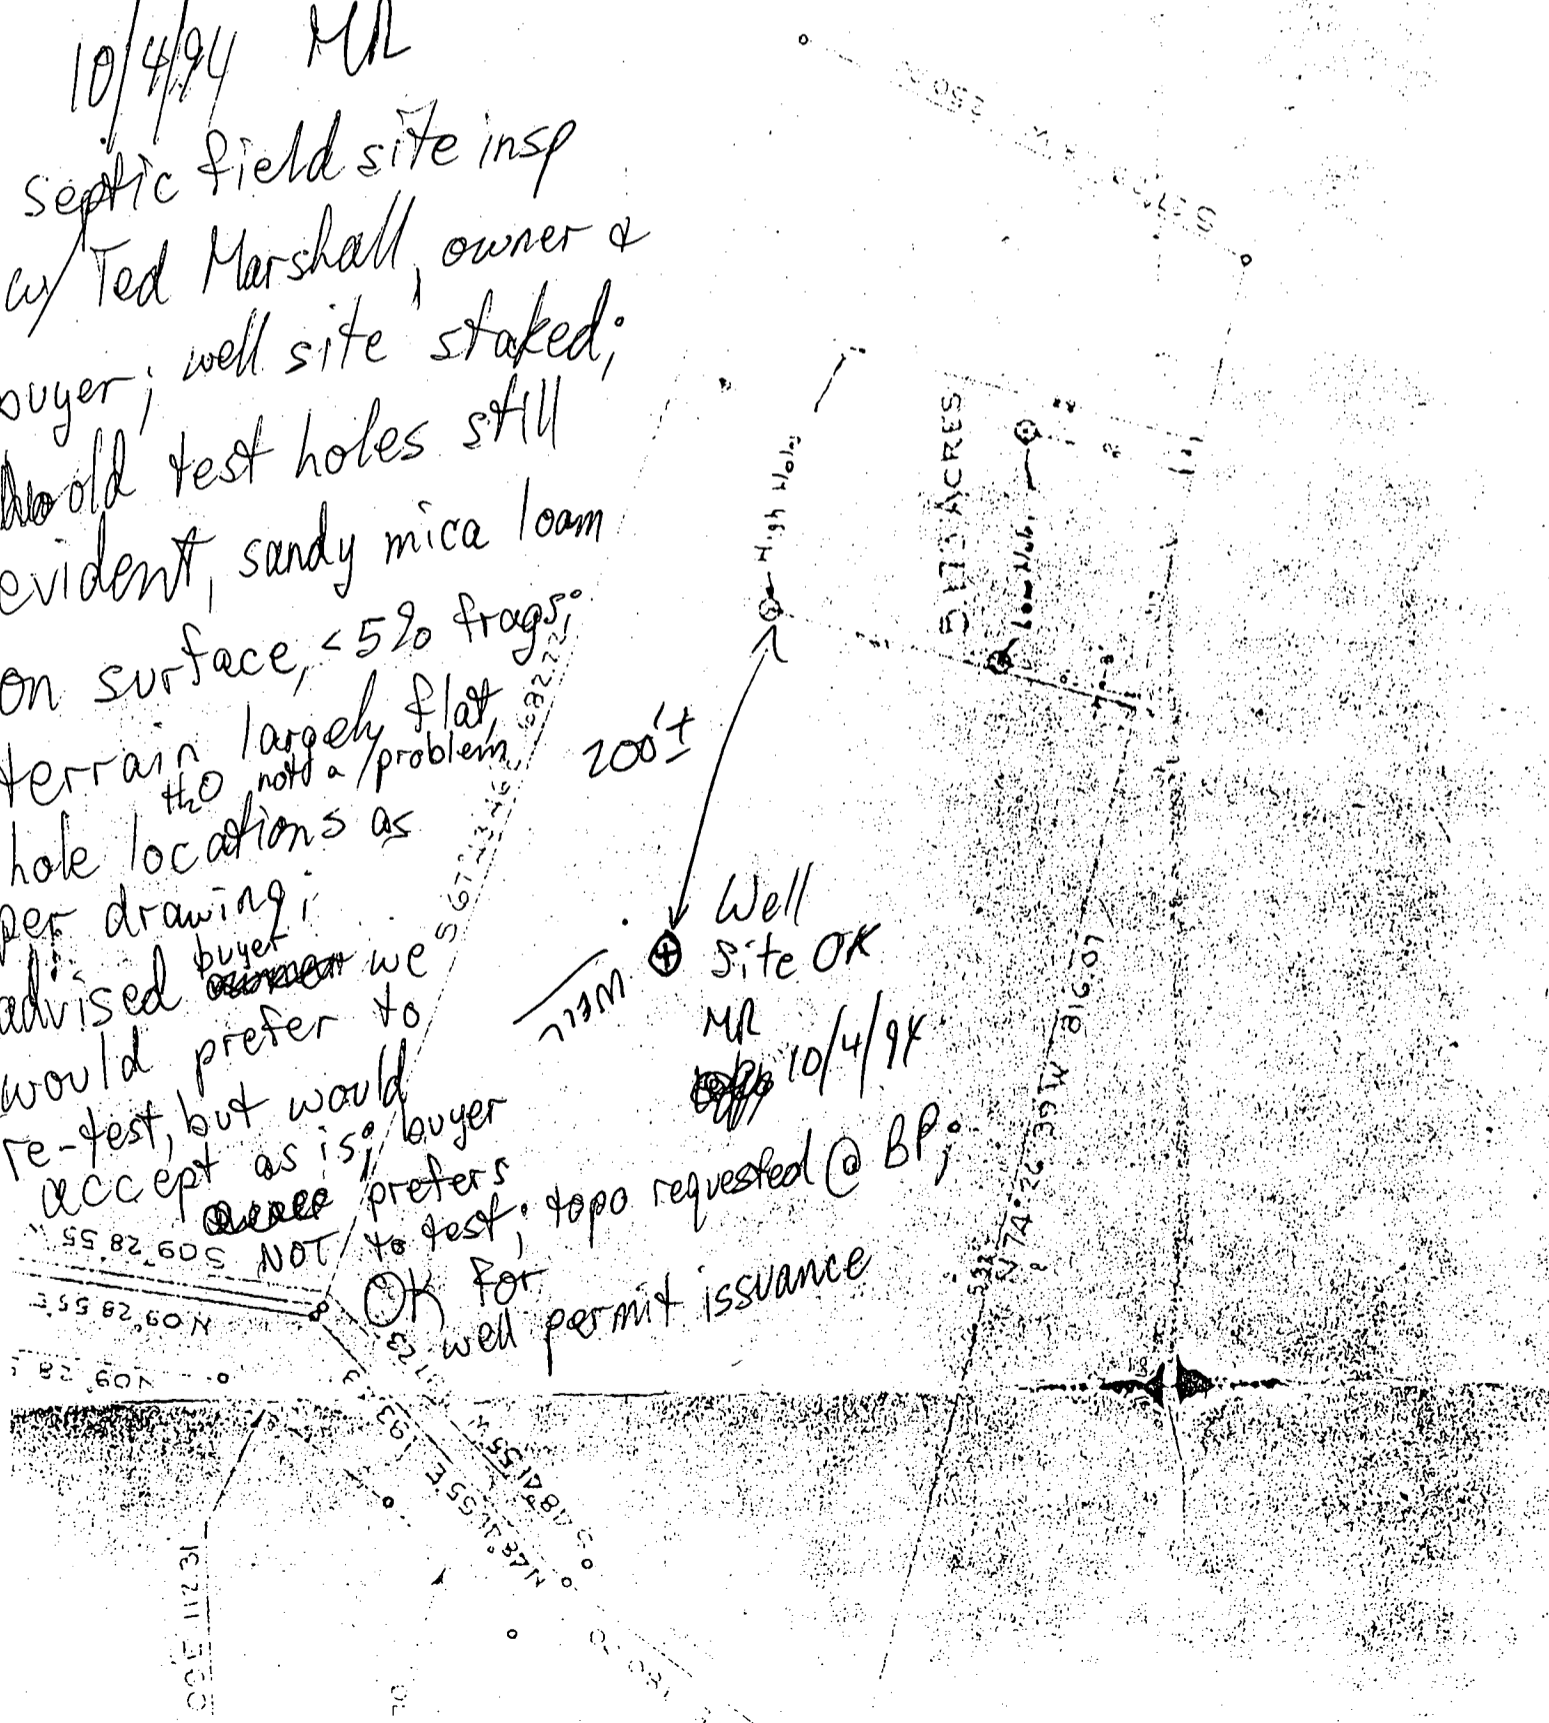 10/4/94 MR
septic field site insp
w/ Ted Marshall, owner &
buyer; well site staked;
old test holes still
evident, sandy mica loam
on surface, <5% frags;
terrain largely flat,
H2O not a problem
hole locations as
per drawing;
advised buyer we
would prefer to
re-test, but would
accept as is; buyer
prefers
NOT to test; topo requested @ BP;
OK for
well permit issuance
200'±
Well
Site OK
MR
10/4/94
WELL
High Hole
Low Hole
5.173 ACRES
816.07
S 09° 28' 55
N 09° 28' 55 E
N09° 28
193
112.31
180
250